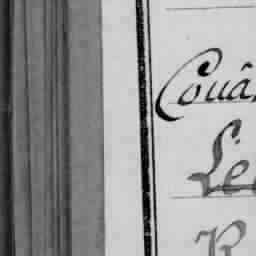 Couâ
Le
R